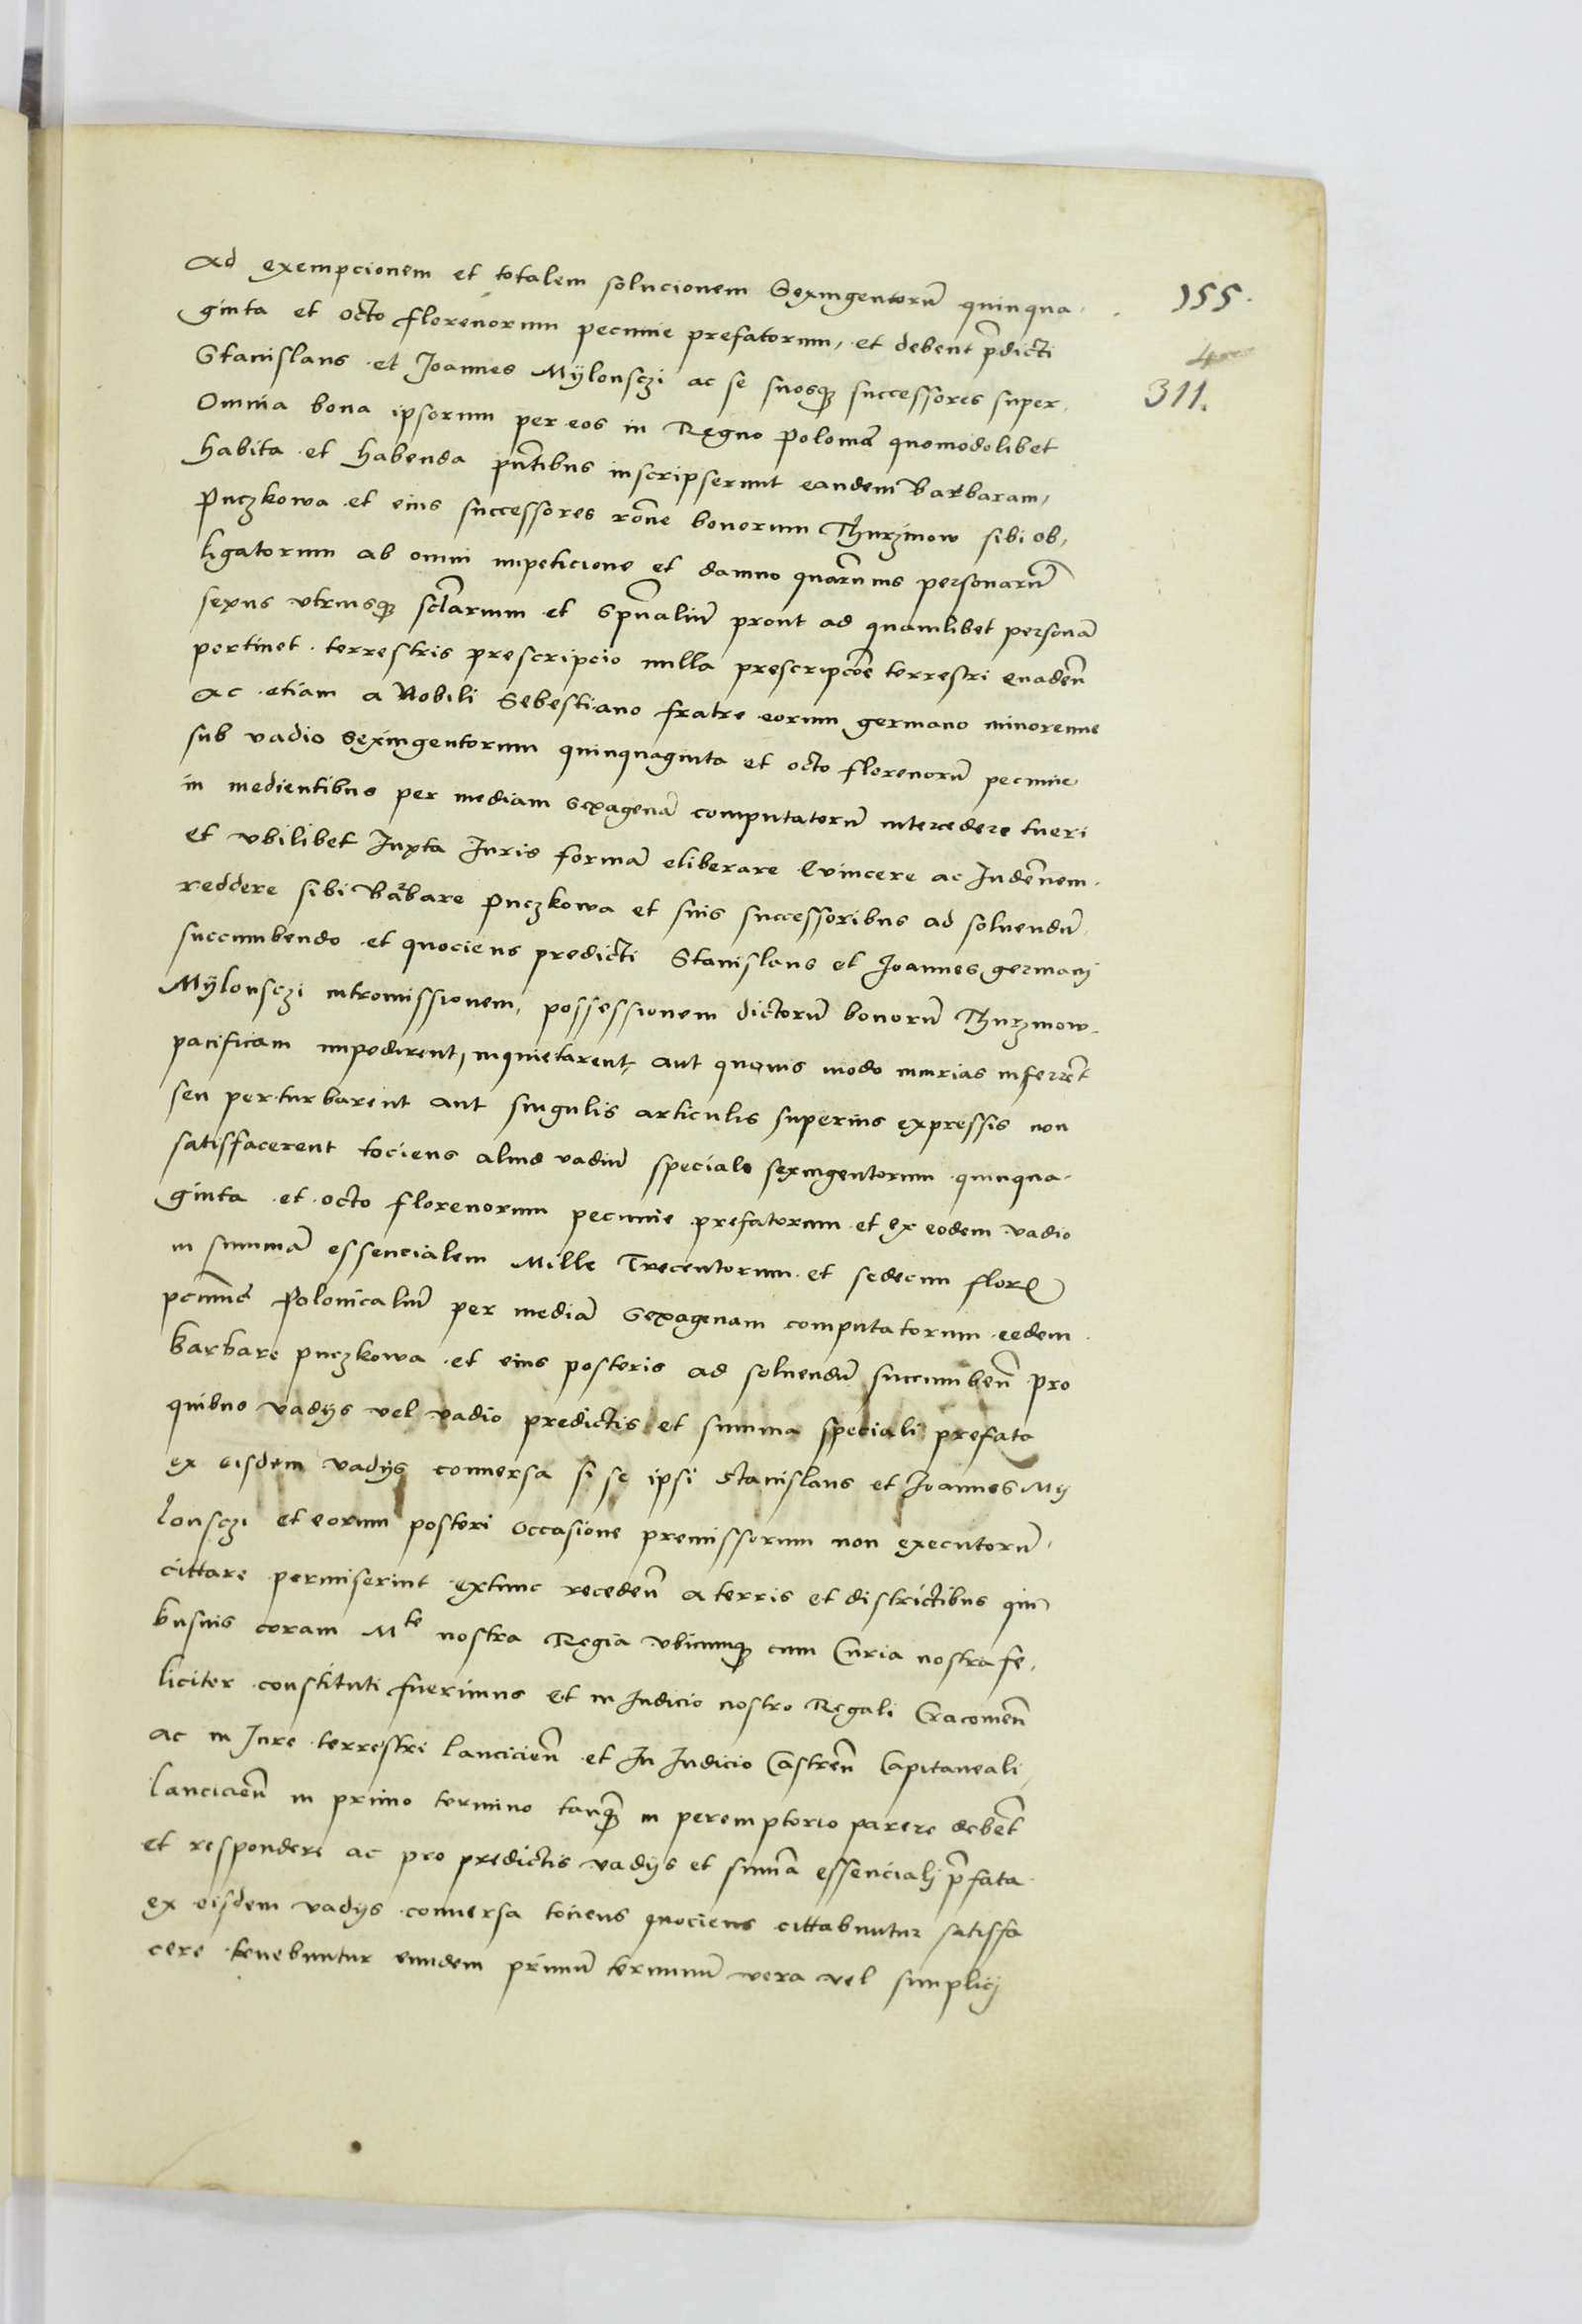 Ad exempcionem et totalem solucionem Sexingentorũ quinqua
155.
ginta et octo florenorum pecunie prefatorum, et debent p̃dicti
Stanislaus et Joannes Mÿlonsczi ac se suosq successores super
311.
Omnia bona ipsorum per eos in Regno Poloniã quomodolibet
habita et habenda pñtibus inscripserunt eandem Barbaram,
Puczkowa et eius successores rõne bonorum Thurzmow sibi ob,
ligatorum ab omni impeticione et damno quarũuis personarũ
sexus vtriusq sclãrium et spũaliũ prout ad quamlibet personã
pertinet terrestris prescripcio nulla prescripcõe terrestri euadeñ
ac etiam a Nobili Sebestiano fratre eorum germano minorenne
sub vadio Sexingentorum quinquaginta et octo florenorũ pecunie
in medientibus per mediam sexagenã computatorũ intercedere tueri
et vbilibet Juxta Juris formã eliberare Euincere ac Indẽnem
reddere sibi Barbare Puczkowa et suis successoribus ad soluendũ
succumbendo et quociens predicti Stanislaus et Joannes germanj
Mÿlonsczi intromissionem, possessionem dictorũ bonorũ Thurzmow
pacificam impedirent, inquietarent, aut quouis modo iniurias inferrẽt
seu perturbarent aut singulis articulis superius expressis non
satisfacerent tociens aliud vadiũ speciale sexingentorum quinqua
ginta et octo florenorum pecunie prefatorum et ex eodem vadio
in summã essencialem Mille Trecentorum et sedecim floreñ
pecuniẽ Polonicaliũ per mediã Sexagenam computatorum eedem
Barbare Puczkowa et eius posteris ad soluendũ succumbeñ pro
quibus vadijs vel vadio predictis et summa speciali prefata
ex eisdem vadijs conuersa si se ipsi Stanislaus et Joannes Mÿ
lonsczi et eorum posteri Occasione premissorum non executorũ
cittare permiserint extunc recedeñ a terris et districtibus qui
busuis coram Mte nostra Regia vbicumq cum Curia nostra fe,
liciter constituti fuerimus Et in Iudicio nostro Regali Cracouieñ
ac in Jure terrestri lancicieñ et In Iudicio Castreñ Capitaneali
lancicieñ in primo termino tanq̃ in peremptorio parere debẽt
et respondere ac pro predictis vadijs et sum̃a essencialj p̃fata
ex eisdem vadijs conuersa tociens quociens cittabuntur satisfa
cere tenebuntur eundem primũ terminũ vera vel simplicj